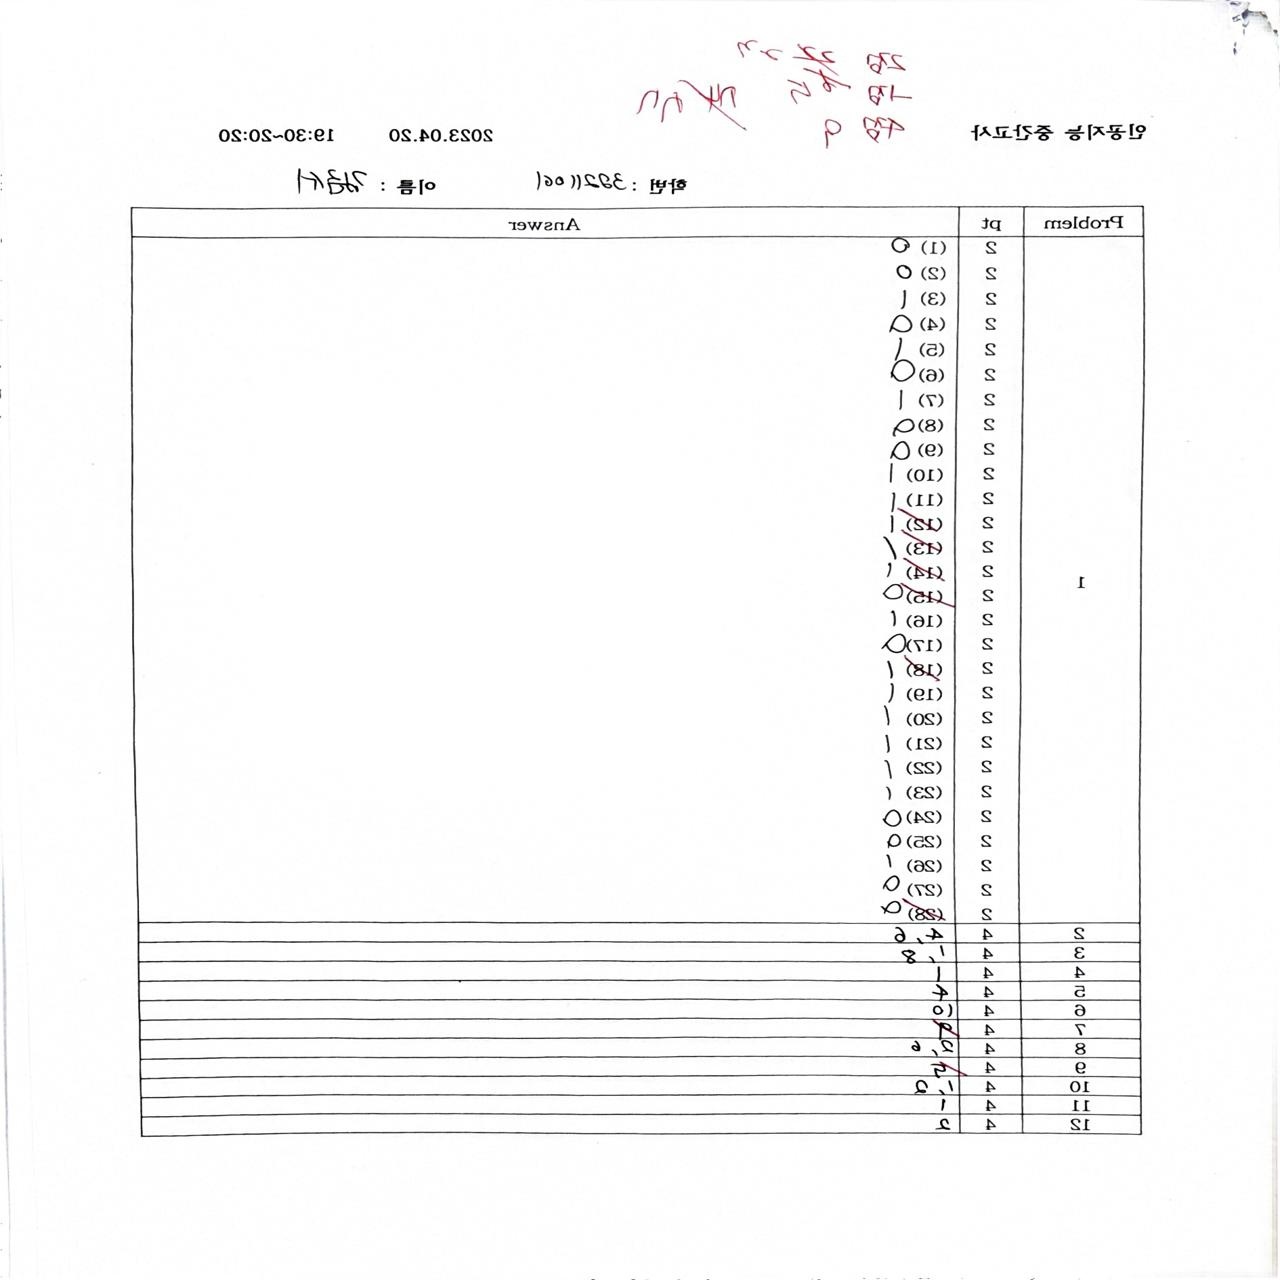 2점
1점
총점
인공지능 중간고사 2023.04.20 19:30~20:20
학번 : 이름 :
Problem pt Answer
1
2 (1) 0
2 (2) 0
2 (3) 1
2 (4) 0
2 (5) 1
2 (6) 0
2 (7) 1
2 (8) 0
2 (9) 0
2 (10) 1
2 (11) 1
2 (12) 1
2 (13) 1
2 (14) 1
2 (15) 0
2 (16) 1
2 (17) 0
2 (18) 1
2 (19) 1
2 (20) 1
2 (21) 1
2 (22) 1
2 (23) 1
2 (24) 0
2 (25) 0
2 (26) 1
2 (27) 0
2 (28) 0
2 4
3 4
4 4 1
5 4 4
6 4
7 4
8 4
9 4
10 4
11 4 1
12 4